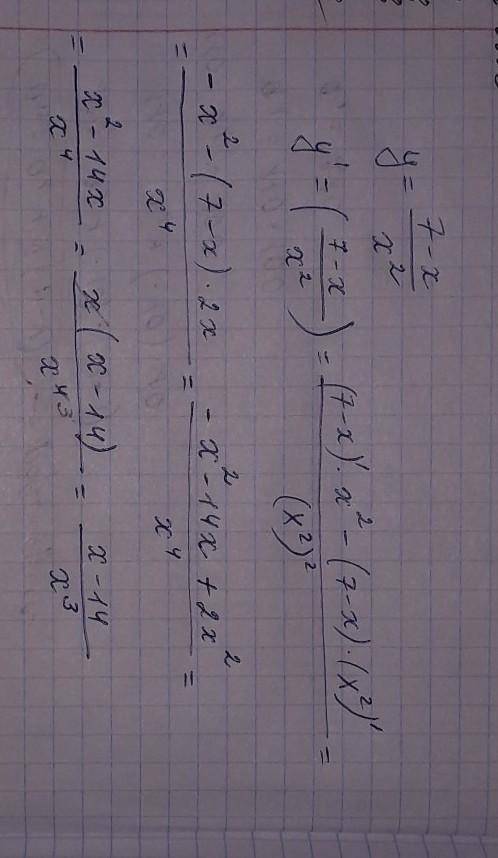 y = (7-x)/x²
y' = ((7-x)/x²)' = ((7-x)'·x² - (7-x)·(x²)')/(x²)² =
= (-x² - (7-x)·2x)/x⁴ = (-x² - 14x + 2x²)/x⁴ =
= (x² - 14x)/x⁴ = x(x-14)/x⁴ ³ = (x-14)/x³